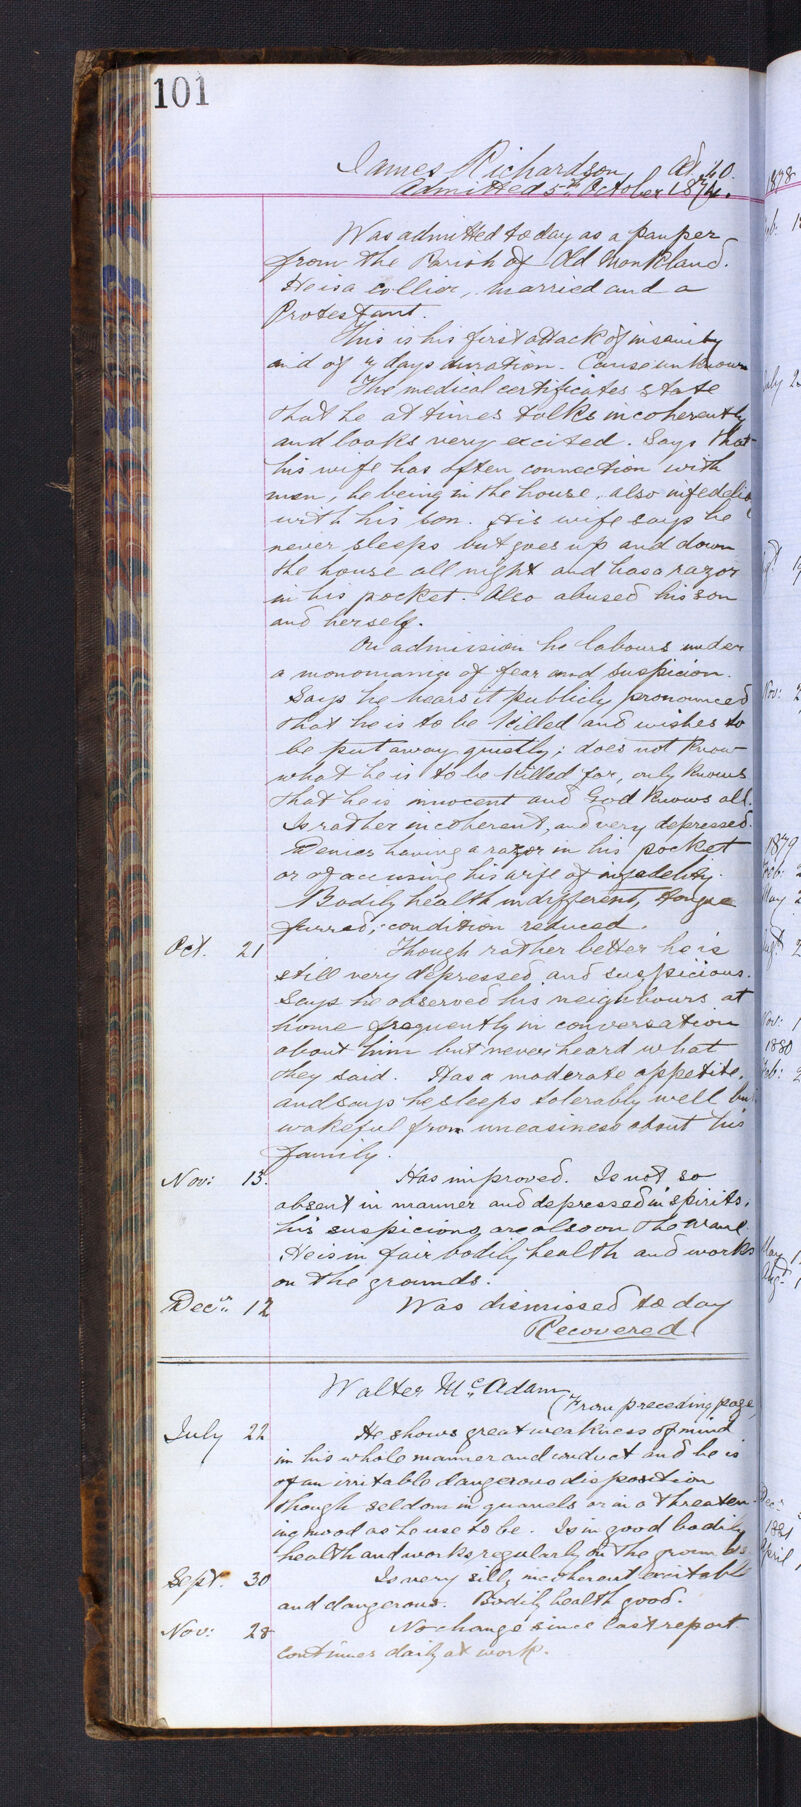 101
James Richardson Æt. 40.
Admitted 5th October 1874.
Was admitted today as a pauper
from the Parish of Old Monkland.
He is a collier, married and a
Protestant.
This is his first attack of insanity
and of 4 days duration. Cause unknown
The medical certificates state
that he at times talks incoherently
and looks very excited. Says that
his wife has often connection with
men, he being in the house, also infedelity
with his son. His wife says he
never sleeps but goes up and down
the house all night and has a razor
in his pocket. Also abused his son
and herself.
On admission he labours under
a monomania of fear and suspicion.
Says he hears it publicly pronounced
that he is to be killed and wishes to
be put away quietly; does not know
what he is to be killed for, only knows
that he is innocent and God knows all.
Is rather incoherent, and very depressed.
Denies having a razor in his pocket
or of accusing his wife of infedelity.
Bodily health indifferent, tongue
furred, condition reduced.
Oct. 21 Though rather better he is
still very depressed and suspicious.
Says he observed his neighbours at
home frequently in conversation
about him but never heard what
they said. Has a moderate appetite,
and says he sleeps tolerably well but
wakeful from uneasiness about his
family.
Nov: 13. Has improved. Is not so
absent in manner and depressed in spirits,
his suspicions are also on the wane.
He is in fair bodily health and works
on the grounds.
Decr. 12 Was dismissed today
Recovered
Walter McAdam
(From preceding page)
July 22 He shows great weakness of mind
in his whole manner and conduct and he is
of an irritable dangerous disposition
though seldom in quarrels or in a threaten-
ing mood as he use to be. Is in good bodily
health and works regularly on the grounds
Sept. 30 Is very silly incoherent excitable
and dangerous. Bodily health good.
Nov: 28 No change since last report
continues daily at work.
1878
July
Nov:
1879
Feb:
May
Augt
Nov:
1880
Feb:
May
Augt
Decr
1881
April